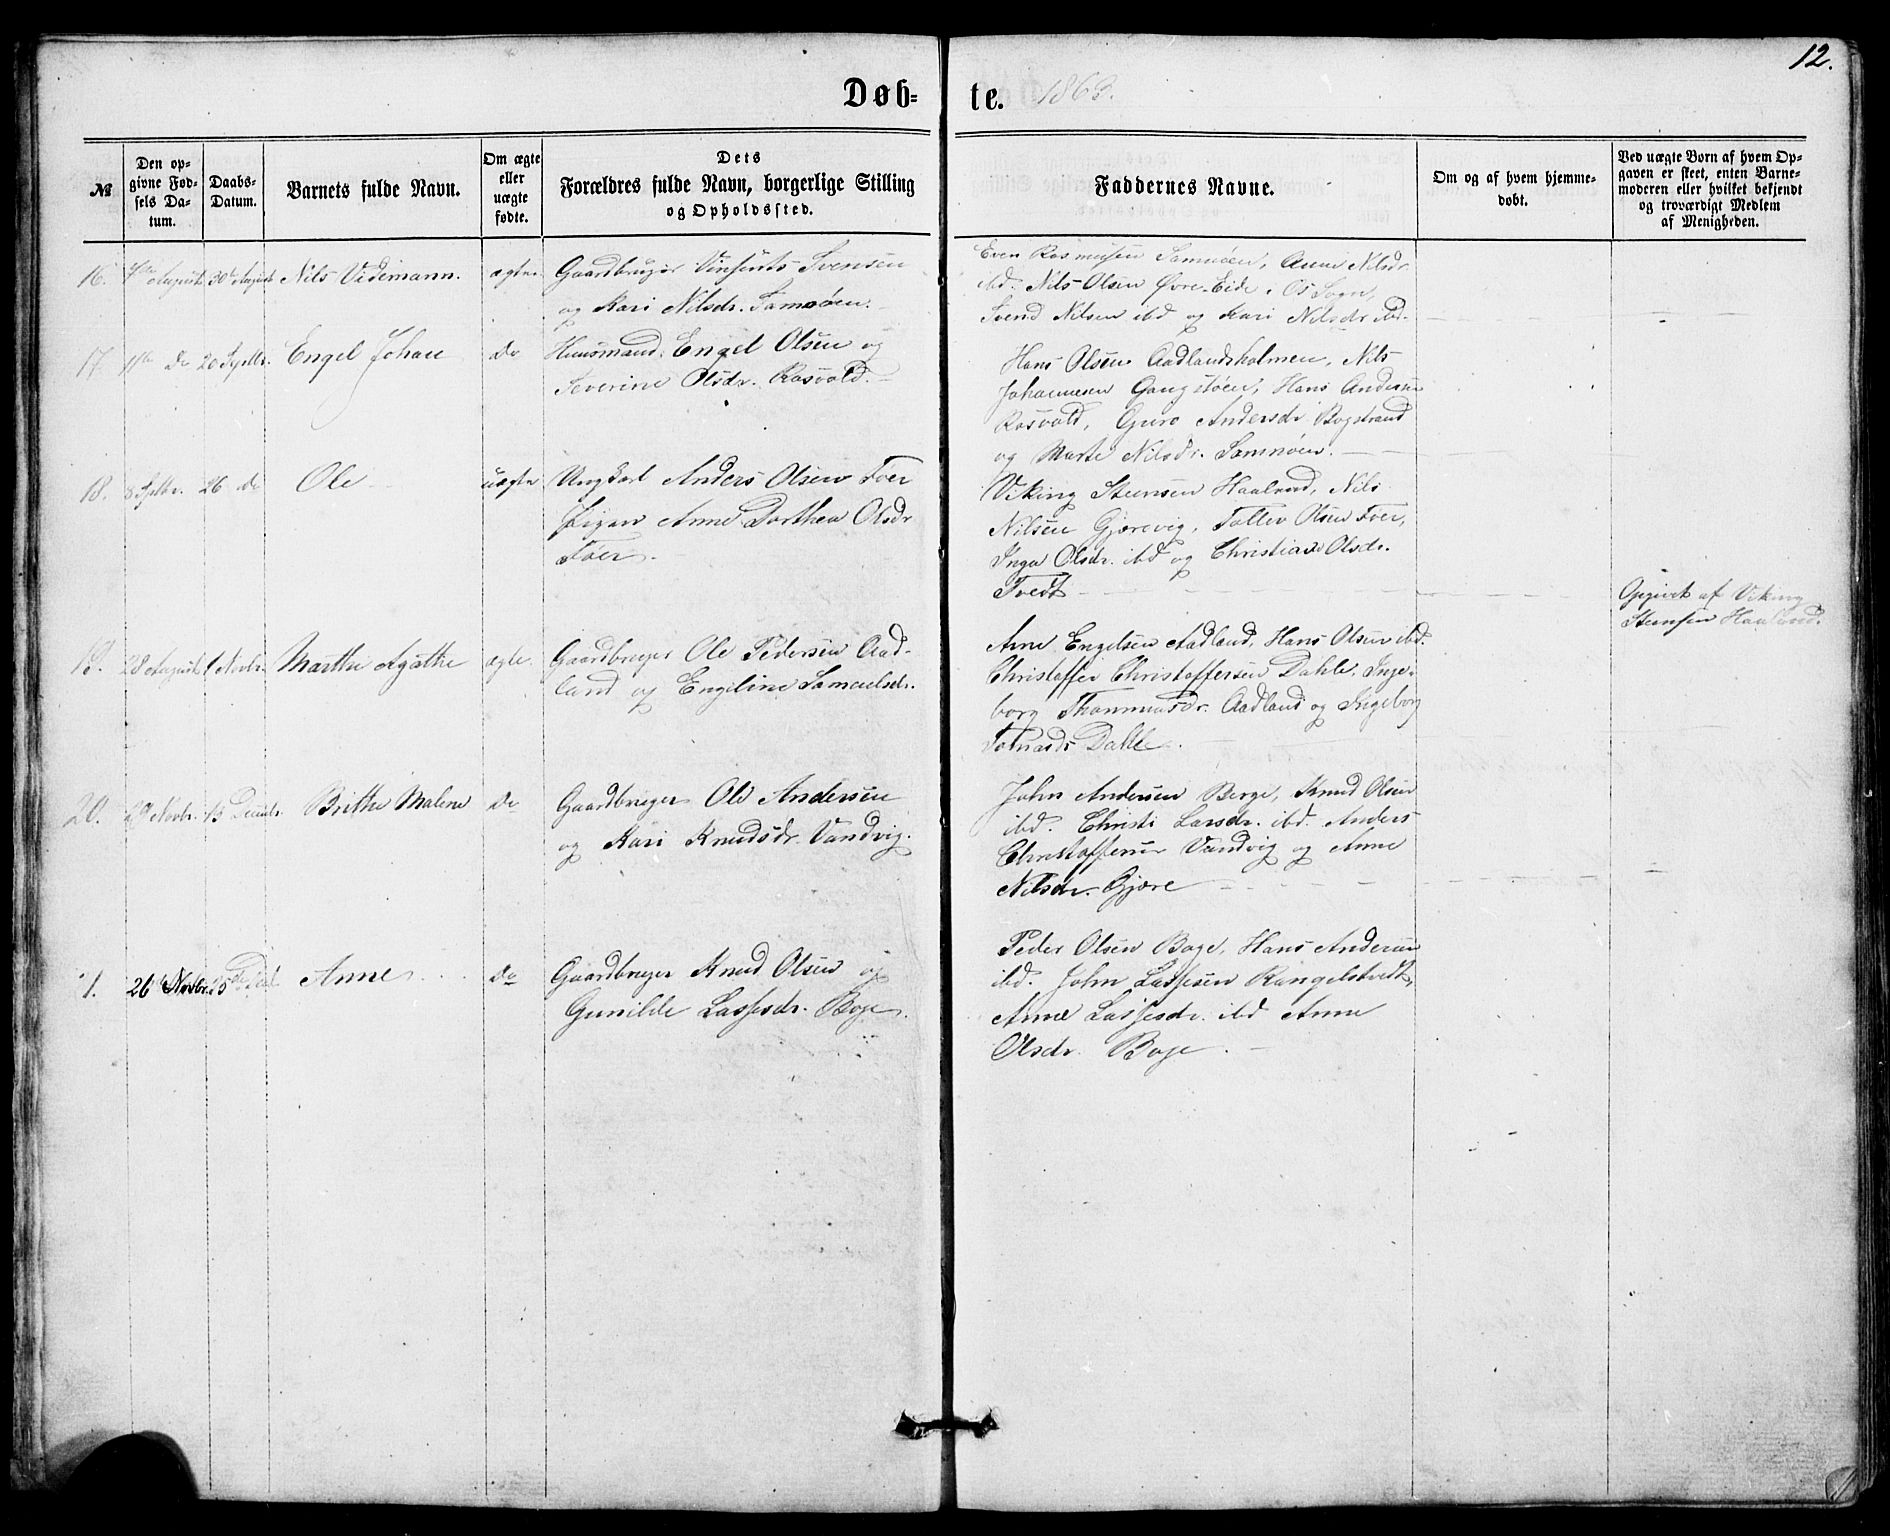 12.
Døb-
te. 1863.
№
Den op-
givne Fød-
sels Da-
tum.
Daabs-
Datum.
Barnets fulde Navn.
Om ægte
eller
uægte
fødte.
Dets
Forældres fulde Navn, borgerlige Stilling
og Opholdssted.
Faddernes Navne.
Om og af hvem hjemme-
døbt.
Ved uægte Børn af hvem Op-
gaven er skeet, enten Barne-
moderen eller hvilket bekjendt
og troværdigt Medlem
af Menigheden.
16. August 30te August Nils Videmann. ægte Gaardbruger Vinsents Svensen
og Kari Nilsdr. Samnøen.
Even Rasmusen Samnøen, Anne Nilsdr.
ibd. Nils Olsen Øvre-Eide, Os Sogn,
Svend Nilsen ibd og Kari Nilsdr ibd.
17. 11te Do 20 Septbr. Engel Johan Do Huusmand Engel Olsen og
Severine Olsdr. Rosvold.
Hans Olsen Aadlandsholmen, Nils
Johannesen Gangstøen, Hans Andersen
Rosvold, Guro Andersdr Bogstrand
og Marte Nilsdr. Samnøen.
18. 8 Septbr. 26 Do Ole uægte Ungkarl Anders Olsen Foer
Pigen Anne Dorthea Olsdr
Foer.
Viking Steensen Haaland, Nils
Nilsen Gjærevig, Tollev Olsen Foer,
Inga Olsdr. ibd og Christian Olsdr.
Tvedt
Opgivet af Viking
Steensen Haaland.
19. 28 August 1 Novbr. Marthe Agathe ægte. Gaardbruger Ole Pedersen Aad-
land og Engeline Samuelsdr.
Arne Engelsen Aadland, Hans Olsen ibd.
Christoffer Christoffersen Dahle, Inge-
borg Thommasdr. Aadland og Ingeborg
Dahle.
20. 29 Novbr. 13 Decmbr. Brithe Malene Do Gaardbruger Ole Andersen
og Kari Knudsdr. Vandvig.
John Andersen Berge, Knud Olsen
ibd. Christi Larsdr. ibd. Anders
Christoffersen Vandvig og Anne
Nilsdr. Gjøre
21. 26 Novbr. 25 Anne Do Gaardbruger Knud Olsen og
Gunilde Lassesdr. Boge.
Peder Olsen Boge, Hans Andersen
ibd. John Lassesen Rangelstvedt,
Anne Lassesdr. ibd Anne
Olsdr. Boge.